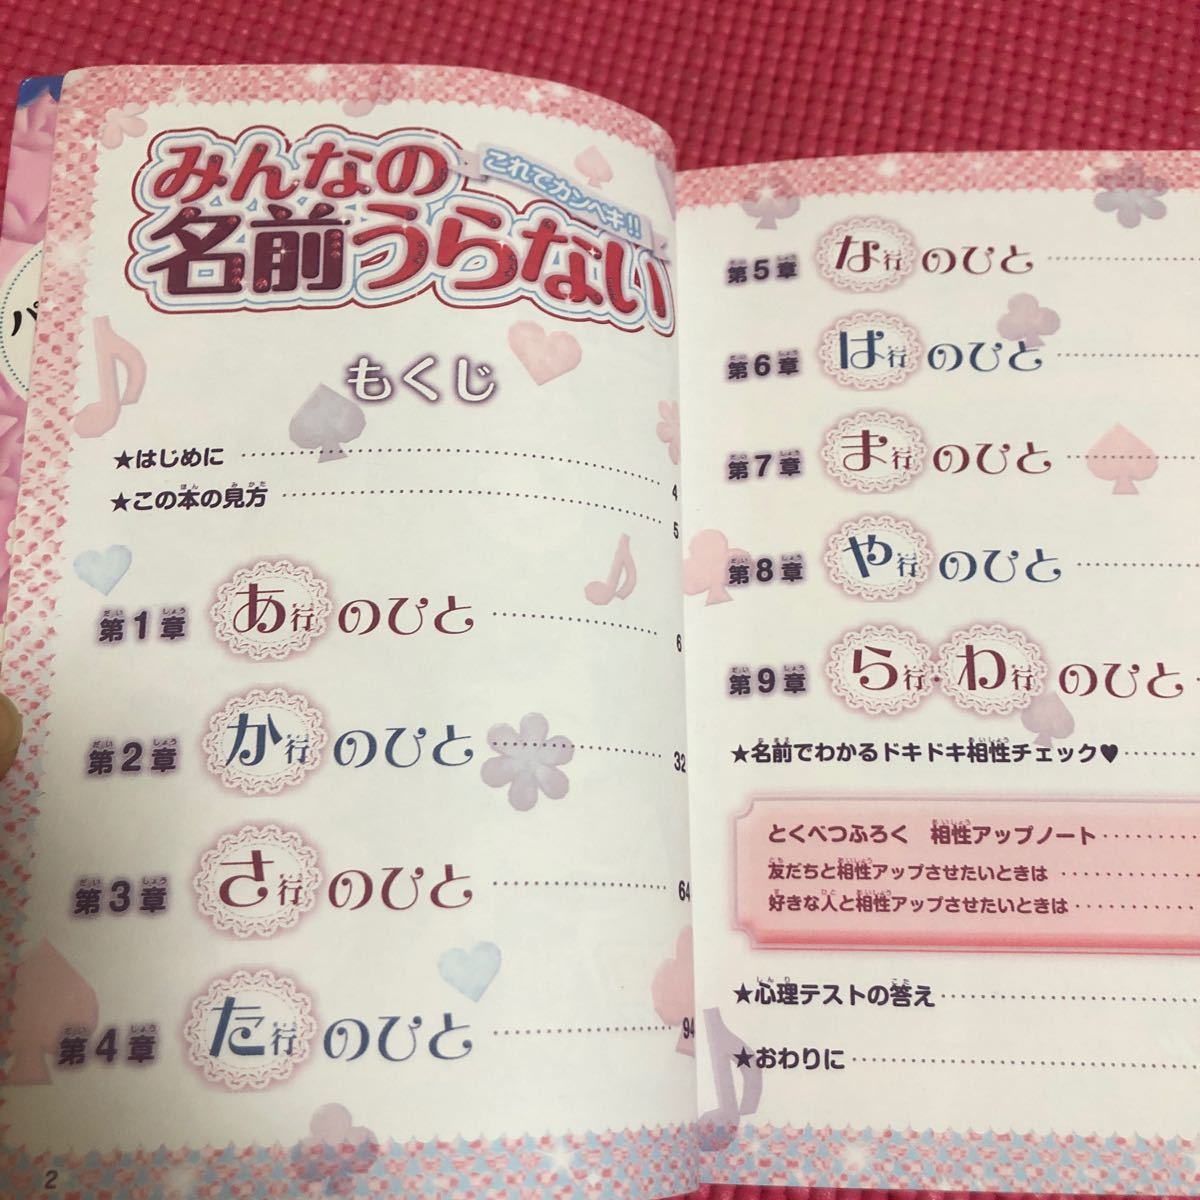 みんなの
これでカンペキ!!
名前うらない
もくじ
★はじめに 4
★この本の見方 5
第1章 あ行のひと 6
第2章 か行のひと 32
第3章 さ行のひと 64
第4章 た行のひと 94
2
第5章 な行のひと
第6章 は行のひと
第7章 ま行のひと
第8章 や行のひと
第9章 ら行・わ行のひと
★名前でわかるドキドキ相性チェック♥
とくべつふろく 相性アップノート
友だちと相性アップさせたいときは
好きな人と相性アップさせたいときは
★心理テストの答え
★おわりに